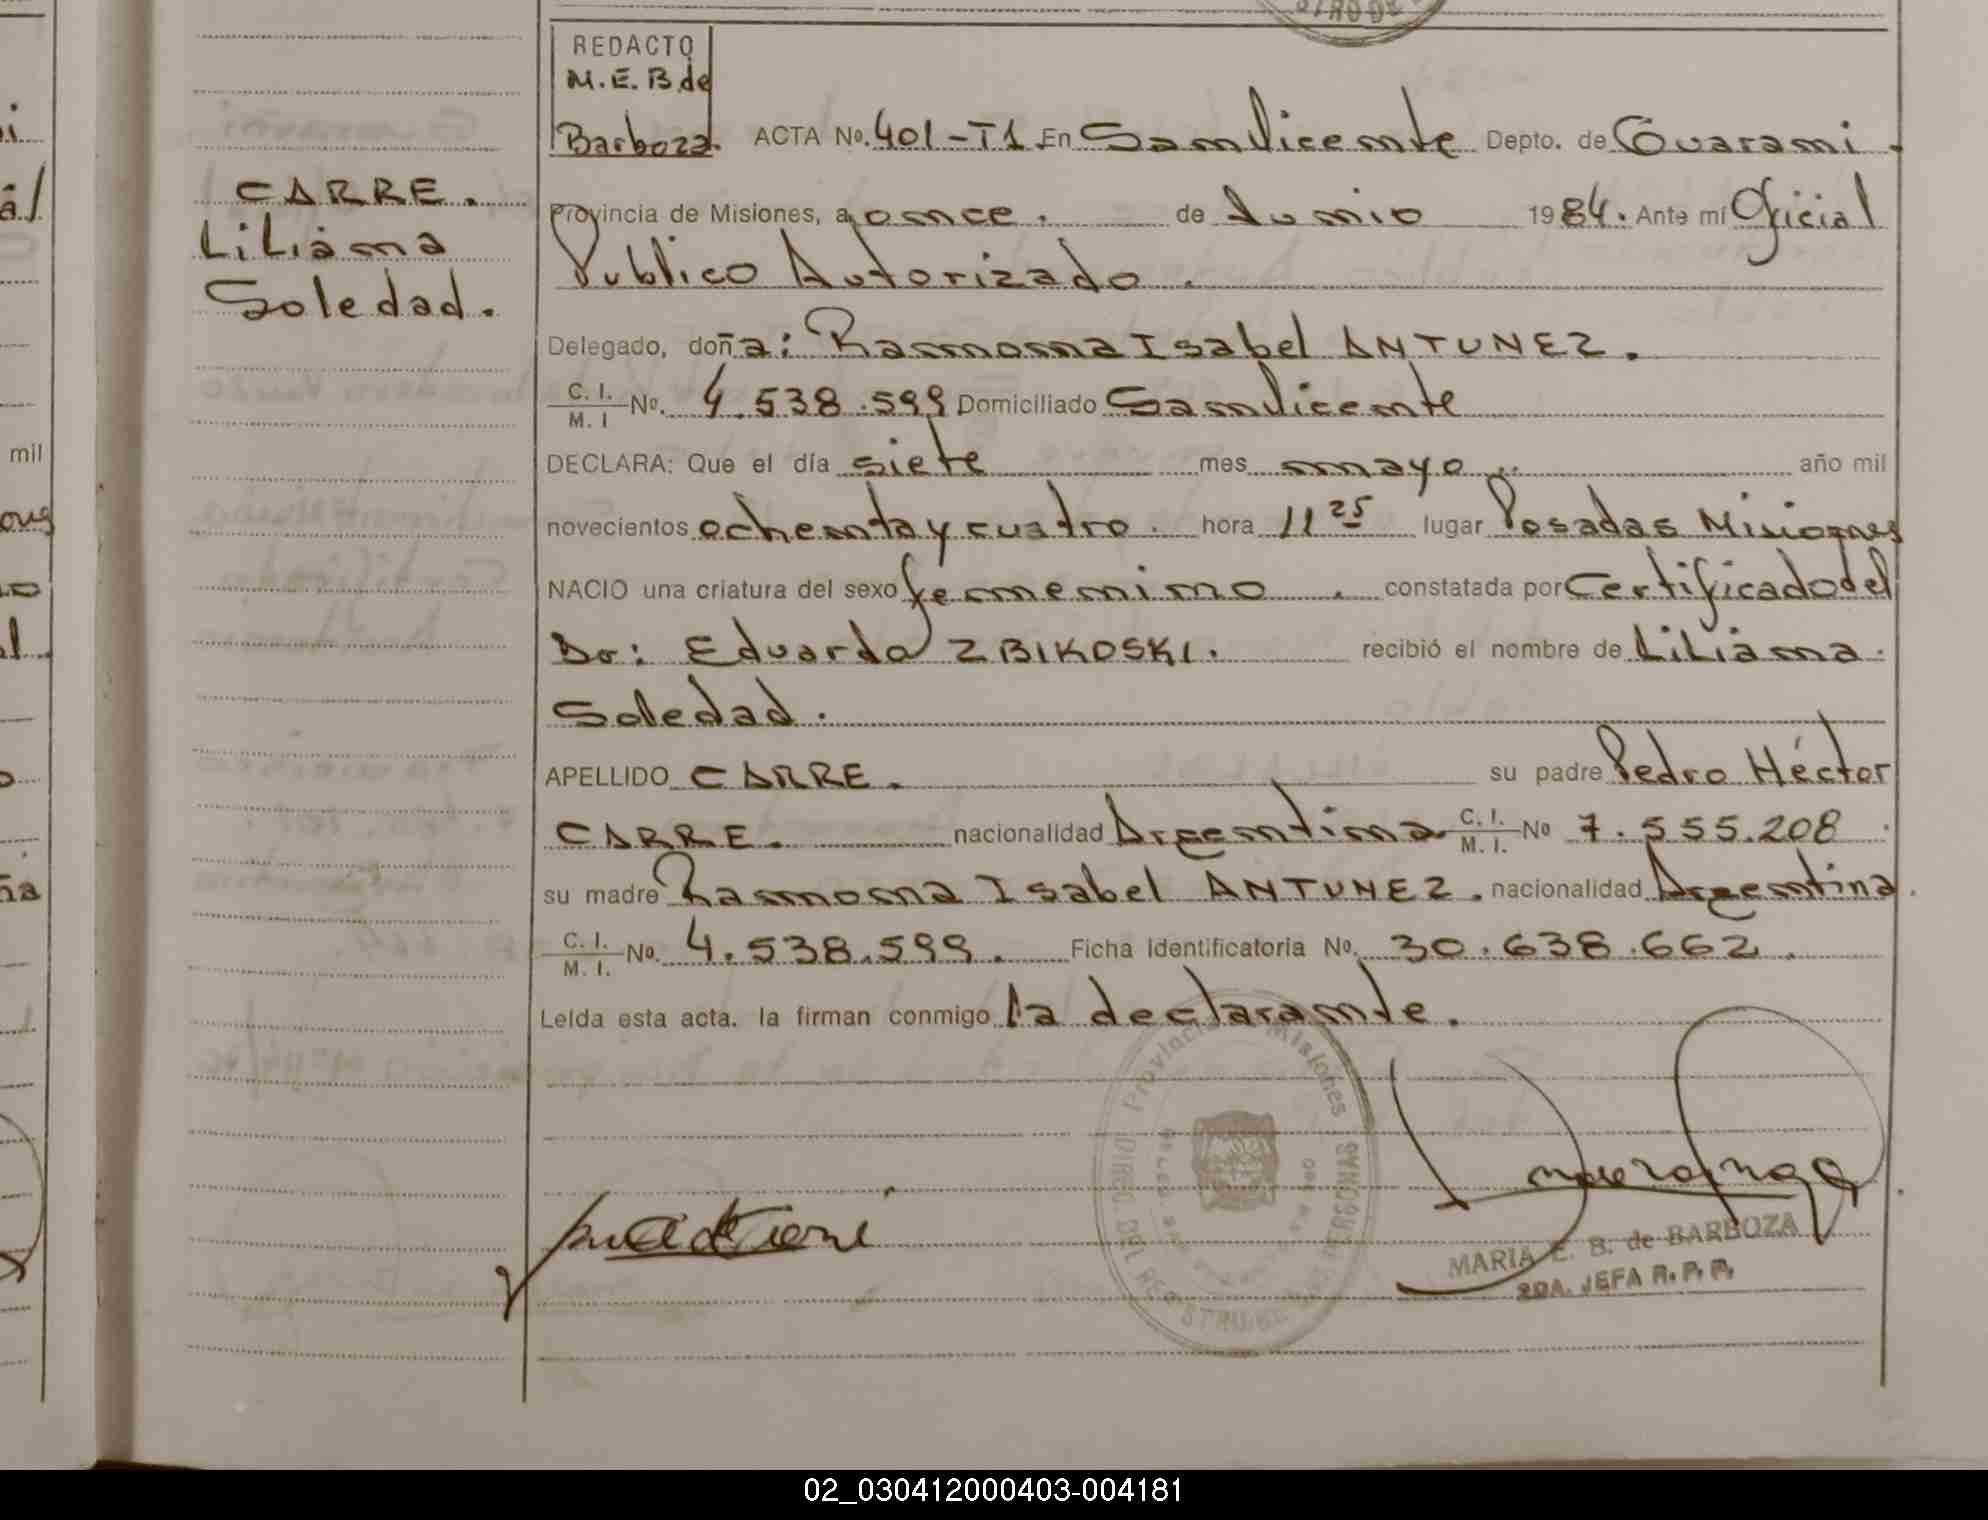 REDACTO
M.E.B de
Barboza.
ACTA No. 401-T1 En San Vicente Depto. de Guarani.
CARRE.
Liliana
Soledad.
Provincia de Misiones, a once. de Junio 1984. Ante mí Oficial
Publico Autorizado.
Delegado, doña: Ramona Isabel ANTUNEZ.
C. I.
M. I No. 4.538.599 Domiciliado San Vicente
DECLARA: Que el día siete mes mayo año mil
novecientos ochenta y cuatro. hora 11 25 lugar Posadas Misiones
NACIO una criatura del sexo femenino. constatada por Certificado del
Dr: Eduardo ZBIKOSKI. recibió el nombre de Liliana
Soledad.
APELLIDO CARRE. su padre Pedro Héctor
CARRE. nacionalidad Argentina C. I.
M. I. No 7.555.208
su madre Ramona Isabel ANTUNEZ. nacionalidad Argentina.
C. I.
M. I. No. 4.538.599. Ficha Identificatoria No. 30.638.662.
Leída esta acta. la firman conmigo la declarante.
Provincia Misiones
MARIA E. B. de BARBOZA
2DA. JEFA R. P. P.
mil
02_030412000403-004181